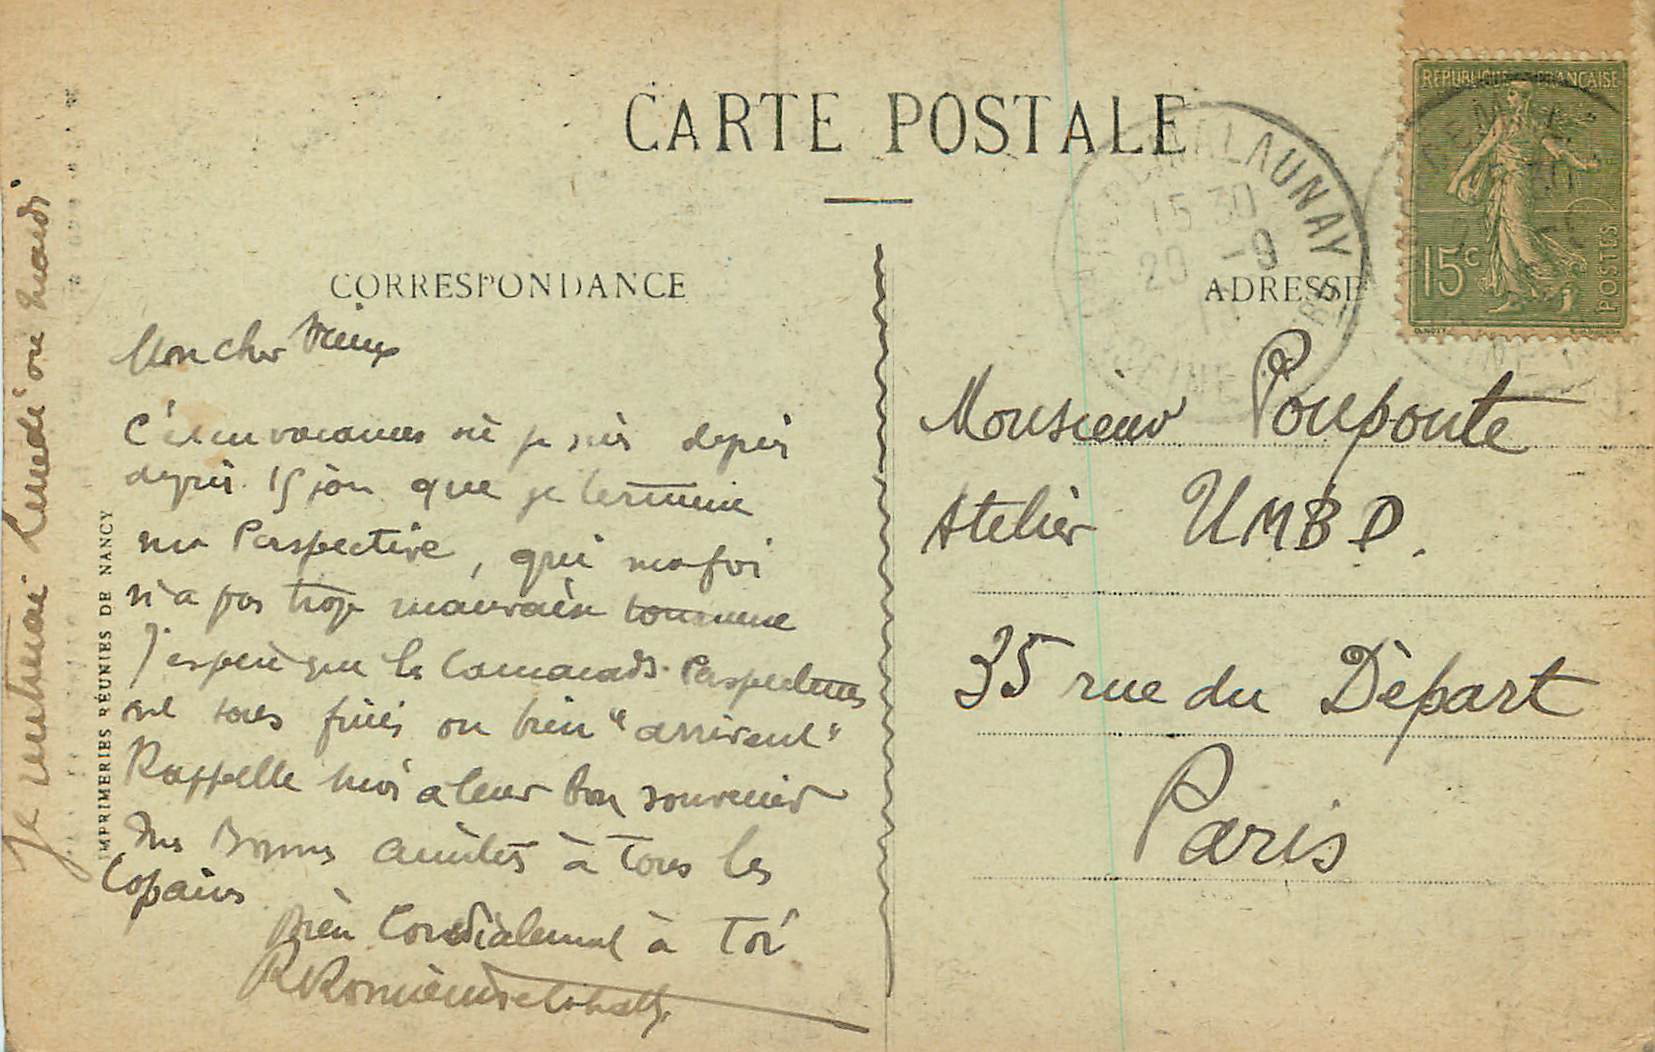 CARTE POSTALE
CORRESPONDANCE
ADRESSE
REPUBLIQUE FRANÇAISE
15c
POSTES
LAUNAY
15 30
20 -9
SEINE
Mon cher Vieux
C'est en vacances où je suis depuis
depuis 15 jou que je termine
ma Perspective, qui ma foi
n'a pas trop mauvaise tournure
J'espère que les Camarads Perspecteurs
ont tous finis ou bien "arrivent"
Rappelle moi a leur bon souvenir
Mes Bonnes amitiés à tous les
Copains
Bien Cordialement à Toi
Je rentrerai Lundi ou Mardi
IMPRIMERIES RÉUNIES DE NANCY
Monsieur Pouponte
Atelier UMBD.
35 rue du Départ
Paris